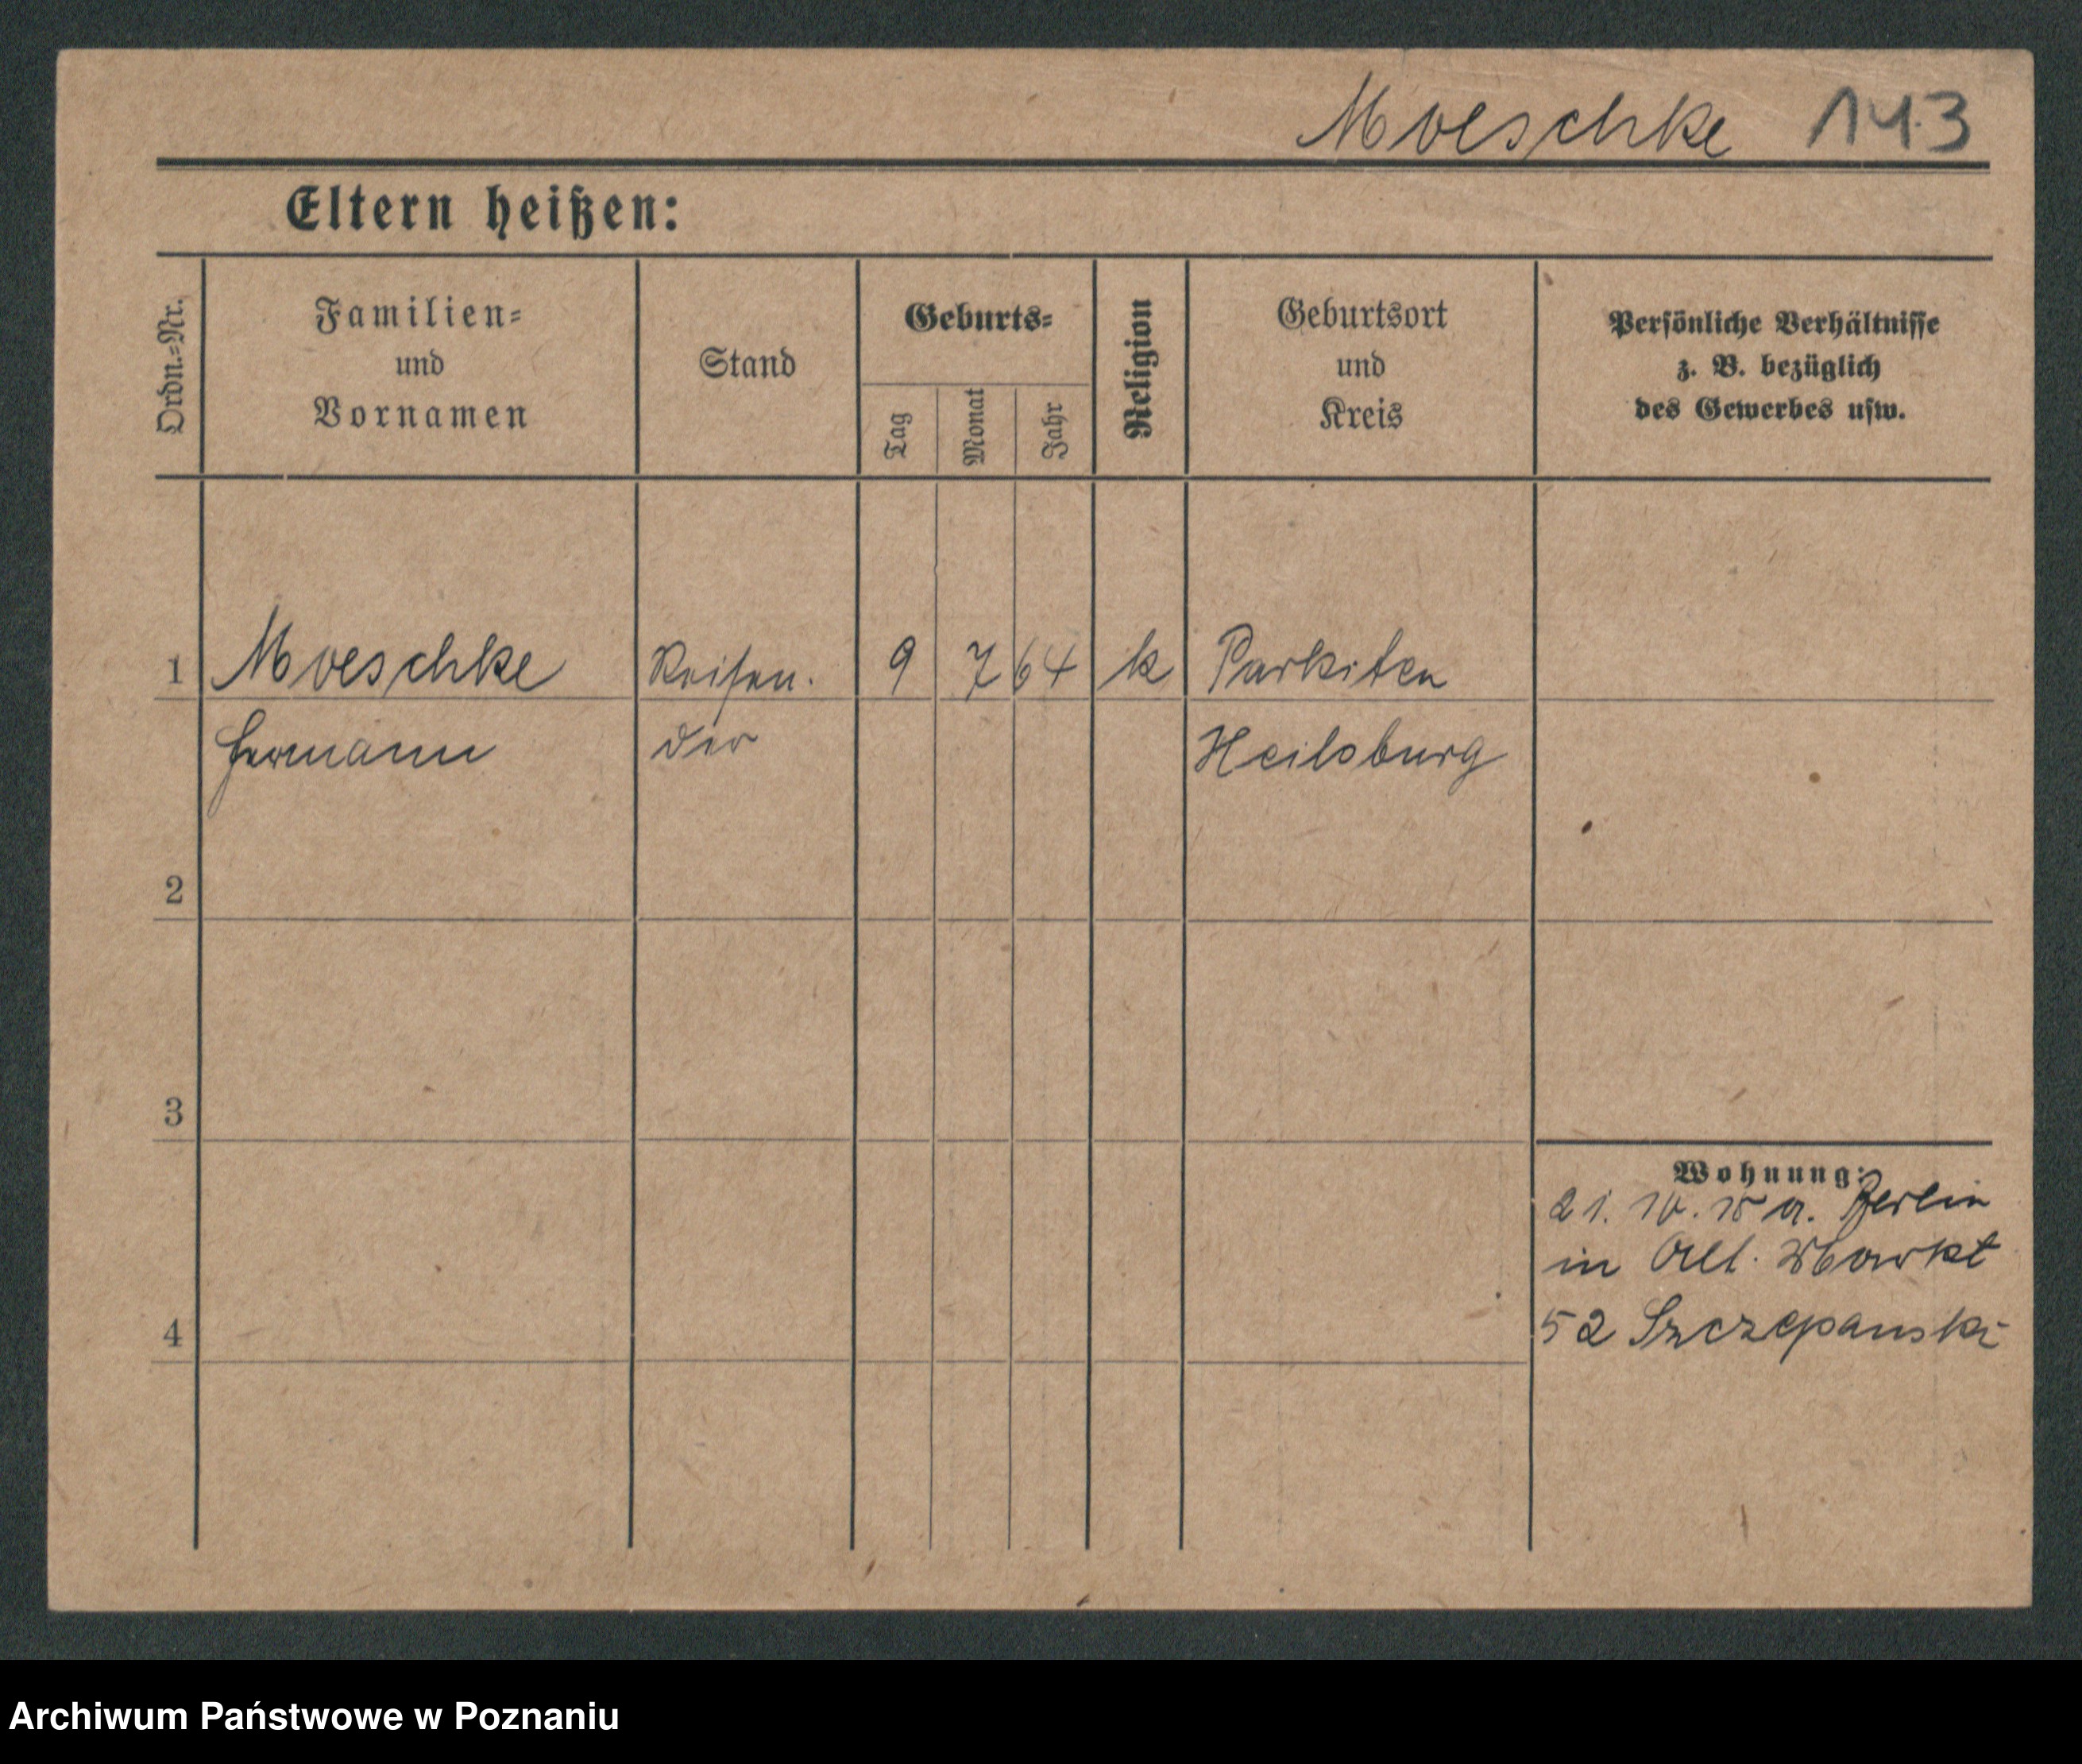 Moeschke 143
Eltern heißen:
Ordn.=Nr.
Familien=
und
Vornamen
Stand
Geburts=
Tag
Monat
Jahr
Religion
Geburtsort
und
Kreis
Persönliche Verhältnisse
z. B. bezüglich
des Gewerbes usw.
1 Moeschke Reisen. 9 7 64 k Parkiten
Hermann der Heilsburg
2
3
Wohnung:
21. 10. 18 a. Berlin
in Alt. Markt
4 52 Szczepanski
Archiwum Państwowe w Poznaniu